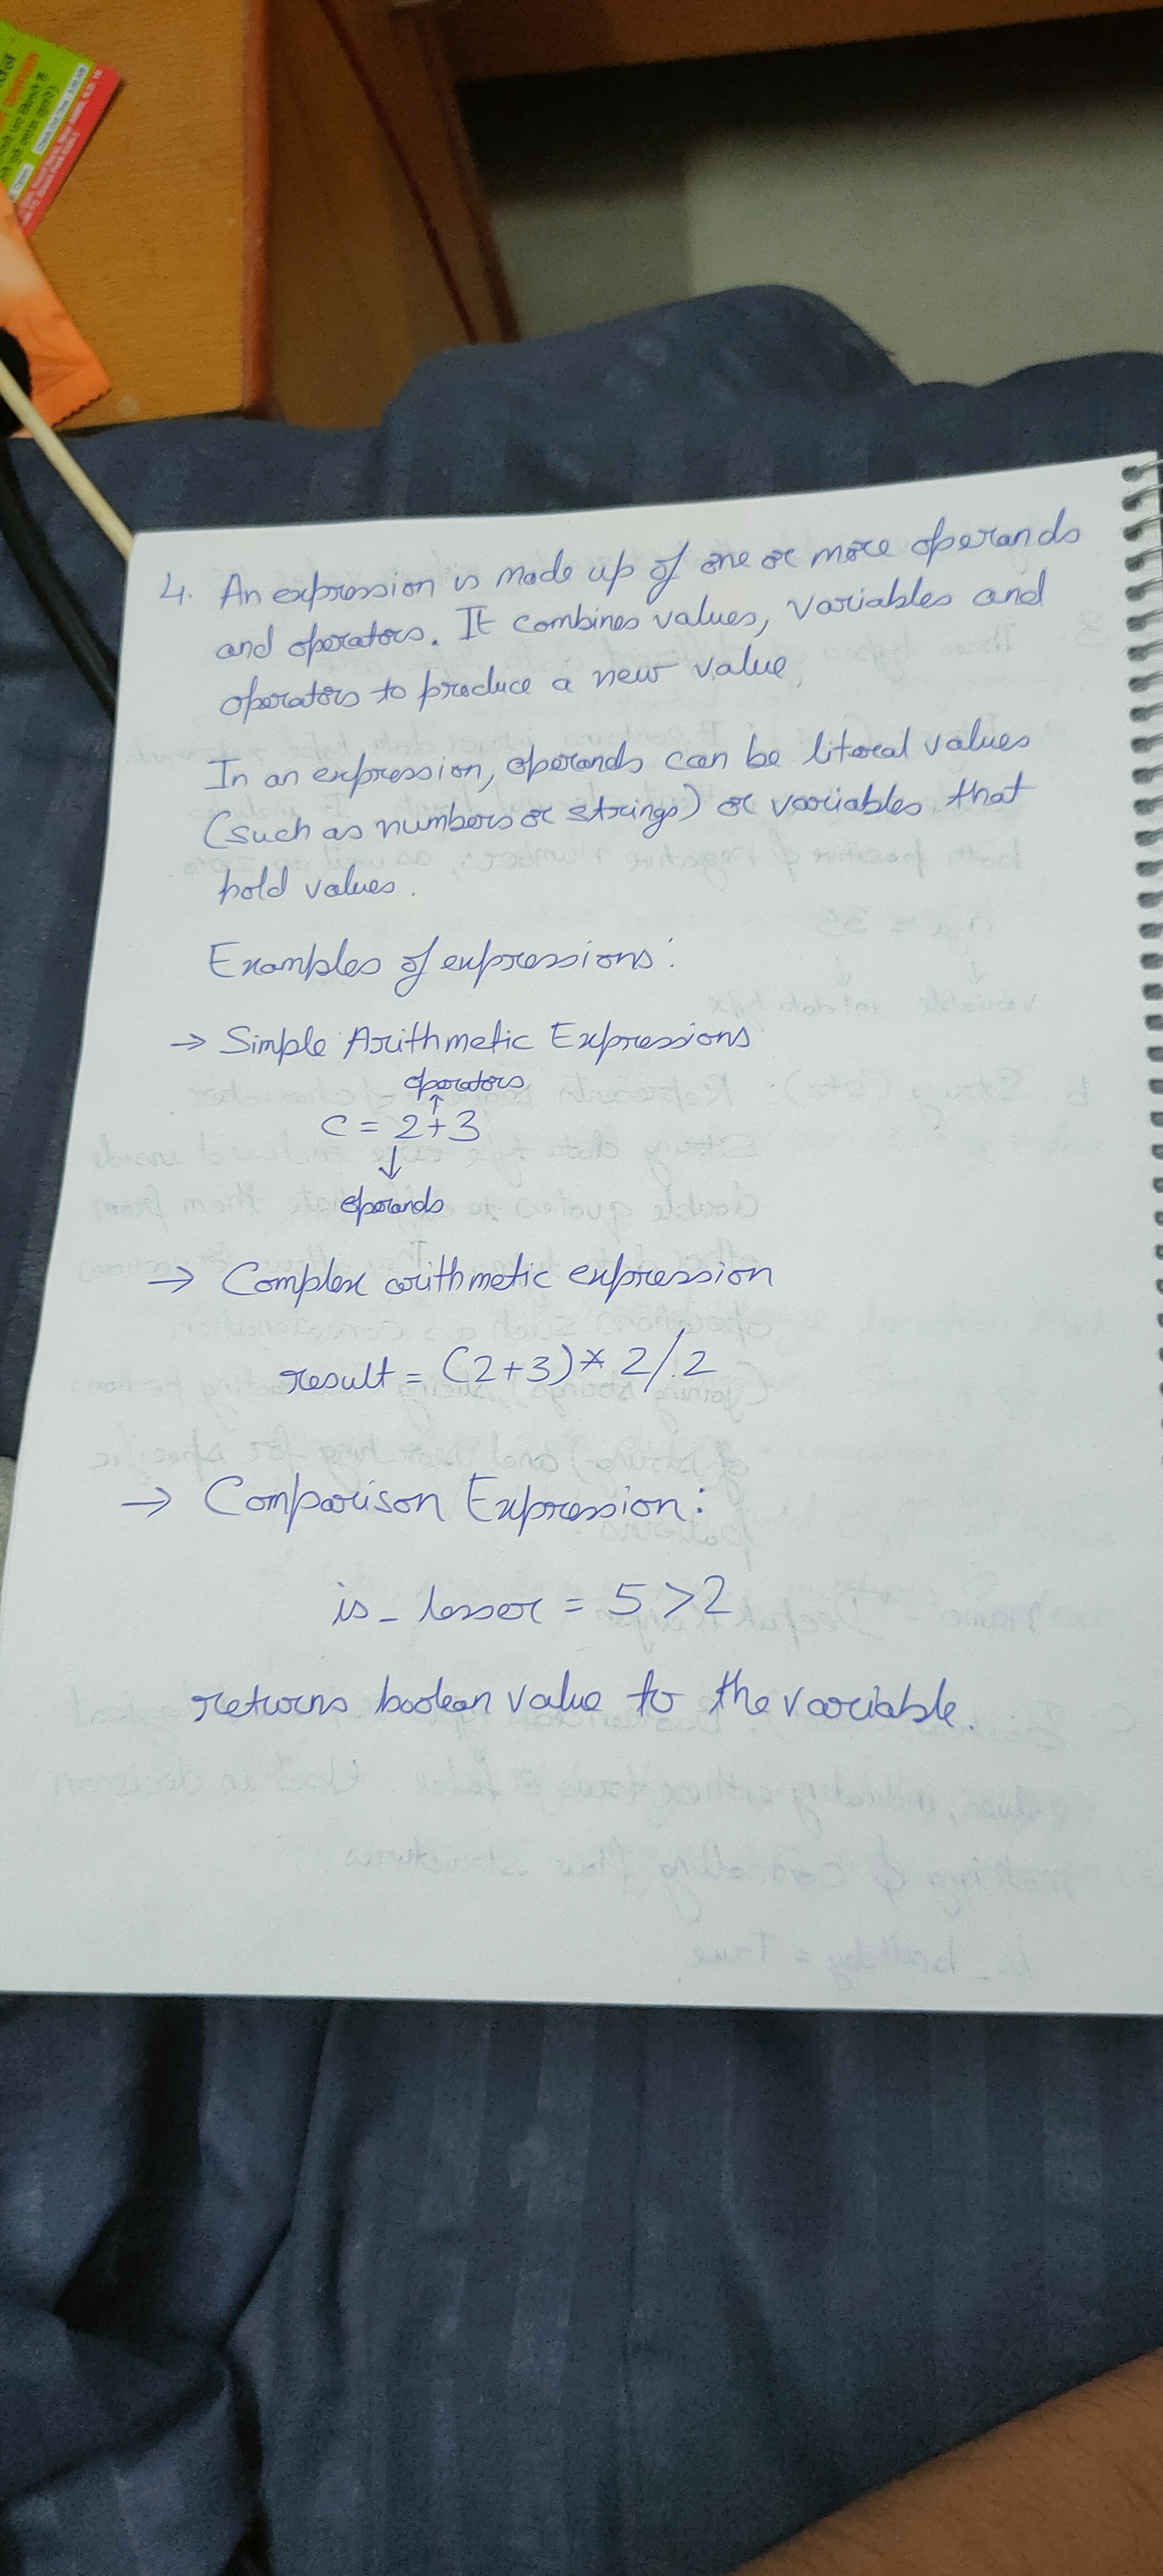 4. An expression is made up of one or more operands
and operators. It combines values, variables and
operators to produce a new value.
In an expression, operands can be literal values
(such as numbers or strings) or variables that
hold values.
Examples of expressions:
→ Simple Arithmetic Expressions
operators
↑
c = 2+3
↓
operands
→ Complex arithmetic expression
result = (2+3)* 2/2
→ Comparison Expression:
is_lesser = 5>2
returns boolean value to the variable.